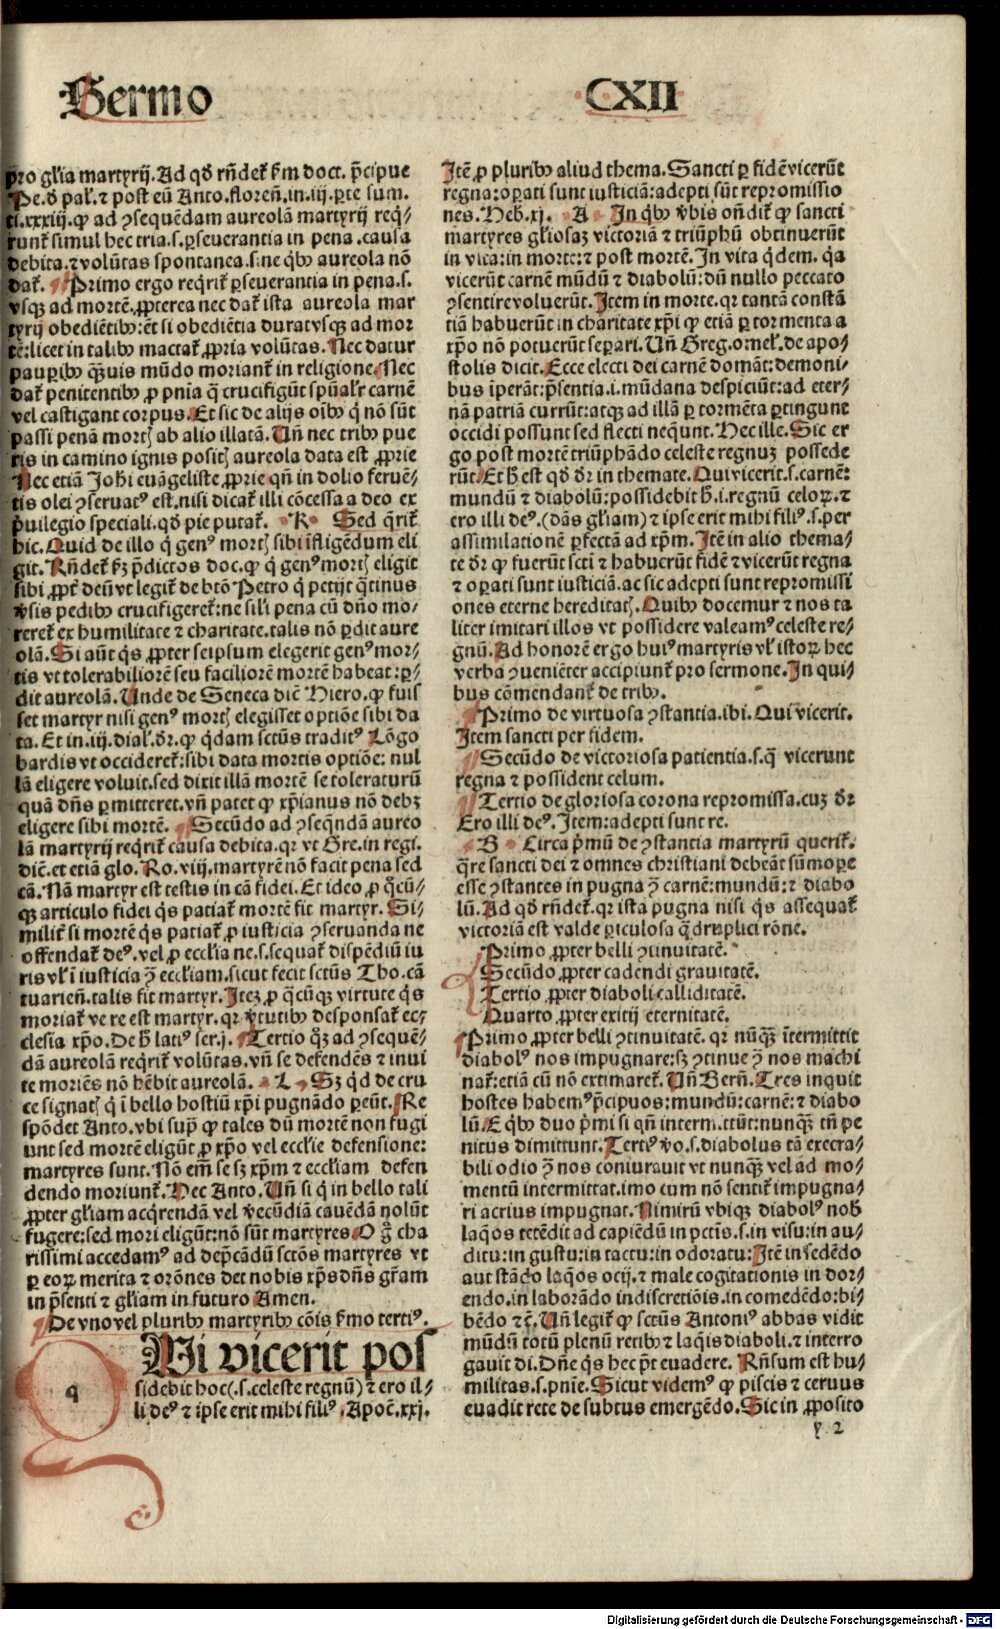 Sermo
CXII
pro gl'ia martyrij. Ad qd̄ rñdet᷑ ẜm doct. p̄cipue
Pe. d̄ pal'. ⁊ post eū Anto. floreñ. in. iij. ꝑte sum.
ti. xxxiij. ꝙ ad ꝯsequēdam aureolā martyrij req̄/
runt᷑ simul hec tria. s. ꝑseuerantia in pena. causa
debita. ⁊ volūtas spontanea. s: ne q̄bꝰ aureola nō
dat᷑. Primo ergo req̄rit᷑ ꝑseuerantia in pena. s.
vsqꝫ ad mortē. ꝓpterea nec dat᷑ ista aureola mar
tyrij obediētibꝰ: et̄ si obediētia durat vsqꝫ ad mor
tē: licet in talibꝰ mactat᷑ ꝓpria volūtas. Nec datur
pauꝑibꝰ q̄ꝫuis mūdo moriant᷑ in religione. Nec
dat᷑ penitentibꝰ ꝓ pn̄ia q̄ crucifigūt spūal'r carnē
vel castigant corpus. Et sic de alijs oībꝰ q̄ nō sūt
passi penā mortꝭ ab alio illatā. Uñ nec tribꝰ pue
ris in camino ignis positꝭ aureola data est ꝓprie
Nec etiā Joh̄i euāgeliste ꝓprie qn̄ in dolio ferue/
tis olei ꝯseruatꝰ est. nisi dicat᷑ illi cōcessa a deo ex
p̄uilegio speciali. qd̄ pie putat᷑. K Sed q̄rit᷑
hic. Quid de illo q̄ genꝰ mortꝭ sibi īfligēdum eli
git. Rñdet᷑ ẜꝫ p̄dictos doc. ꝙ q̄ genꝰ mortꝭ eligit
sibi ꝓpt᷑ deū vt legit᷑ de btō Petro q̄ petijt q̄tinus
v̄sis pedibꝰ crucifigeret᷑: ne sil'i pena cū dn̄o mo/
reret᷑ ex humilitate ⁊ charitate. talis nō ꝑdit aure
olā. Si aūt q̄s ꝓpter seipsum elegerit genꝰ mor/
tis vt tolerabiliorē seu faciliorē mortē habeat: ꝑ/
dit aureolā. Unde de Seneca diē Hiero. ꝙ fuis
set martyr nisi genꝰ mortꝭ elegisset optiōe sibi da
ta. Et in. iij. dial'. dr̄. ꝙ q̄dam sctūs traditꝰ Lōgo
bardis vt occideret᷑: sibi data mortis optiōe: nul
lā eligere voluit. sed dixit illā mortē se toleraturū
quā dn̄s ꝑmitteret. vn̄ patet ꝙ xp̄ianus nō debꝫ
eligere sibi mortē. Secūdo ad ꝯseq̄ndā aureo
lā martyrij req̄rit᷑ causa debita. qꝛ vt Gre. in regi.
diē. et etiā glo. Ro. viij. martyrē nō facit pena sed
cā. Nā martyr est testis in cā fidei. Et ideo ꝓ q̄cū/
qꝫ articulo fidei q̄s patiat᷑ mortē fit martyr. Si/
milit᷑ si mortē q̄s patiat᷑ ꝓ iusticia ꝯseruanda ne
offendat᷑ deꝰ. vel ꝓ ecclīa ne. s. sequat᷑ dispēdiū iu
ris vl' ī iusticia ꝯ̄ eccliam. sicut fecit sctūs Tho. cā
tuarieñ. talis fit martyr. Itēꝫ ꝓ q̄cūqꝫ virtute q̄s
moriat᷑ vere est martyr. qꝛ v̄tutibꝰ desponsat᷑ ec/
clesia xp̄o. De h̄ latiꝰ ser. j. Tertio q̄ꝫ ad ꝯsequē/
dā aureolā req̄rit᷑ volūtas. vn̄ se defendēs ⁊ inui
te moriēs nō hēbit aureolā. L Sꝫ q̄d de cru
ce signatꝭ q̄ ī bello hostiū xp̄i pugnādo ꝑeūt. Re
spōdet Anto. vbi sup̄ ꝙ tales dū mortē non fugi
unt sed mortem eligūt ꝓ xp̄o vel ecclīe defensione:
martyres sunt. Nō em̄ se sꝫ xp̄m ⁊ eccliam defen
dendo moriunt᷑. Hec Anto. Uñ si q̄ in bello tali
ꝓpter gl'iam acq̄rendā vel v̄ecūdiā cauēdā nolūt
fugere: sed mori eligūt: nō sūt martyres. O g̊ cha
rissimi accedamꝰ ad dep̄cādū sctōs martyres vt
ꝑ eoꝝ merita ⁊ orōnes det nobis xp̄s dn̄s gr̄am
in p̄senti ⁊ gl'iam in futuro Amen.
De vno vel pluribꝰ martyribꝰ cōis ẜmo tertiꝰ.
q
Ui vicerit pos
sidebit hoc (. s. celeste regnū) ⁊ ero il/
li deꝰ ⁊ ipse erit mihi filiꝰ. Apoc̄. xxj.
Itē ꝓ pluribꝰ aliud thema. Sancti ꝑ fidē vicerūt
regna: oꝑati sunt iusticiā: adepti sūt repromissio
nes. Heb. xj. A In q̄bꝰ v̄bis on̄dit᷑ ꝙ sancti
martyres gl'iosaꝫ victoriā ⁊ triūphū obtinuerūt
in vita: in morte: ⁊ post mortē. In vita q̄dem. q̄a
vicerūt carnē mūdū ⁊ diabolū: dū nullo peccato
ꝯsentire voluerūt. Item in morte. qꝛ tantā constā
tiā habuerūt in charitate xp̄i ꝙ etiā ꝑ tormenta a
xp̄o nō potuerūt seꝑari. Uñ Greg. omel'. de apo/
stolis dicit. Ecce electi dei carnē domāt: demoni/
bus īperāt: p̄sentia. i. mūdana despiciūt: ad eter/
nā patriā currūt: atqꝫ ad illā ꝑ tormēta ꝑtingunt
occidi possunt sed flecti neq̄unt. Hec ille. Sic er
go post mortē triūphādo celeste regnuꝫ possede
rūt. Et h̄ est qd̄ dr̄ in themate. Qui vicerit. s. carnē:
mundū ⁊ diabolū: possidebit h̄. i. regnū celoꝝ. ⁊
ero illi deꝰ. (dās gl'iam) ⁊ ipse erit mihi filiꝰ. s. per
assimilationē ꝑfectā ad xp̄m. Itē in alio thema/
te dr̄ ꝙ fuerūt scti ⁊ habuerūt fidē ⁊ vicerūt regna
⁊ oꝑati sunt iusticiā. ac sic adepti sunt repromissi
ones eterne hereditatꝭ. Quibꝰ docemur ⁊ nos ta
liter imitari illos vt possidere valeamꝰ celeste re/
gnū. Ad honorē ergo huiꝰ martyris vl' istoꝝ hec
verba ꝯueniēter accipiunt᷑ pro sermone. In qui/
bus cōmendant᷑ de tribꝰ.
Primo de virtuosa ꝯstantia. ibi. Qui vicerit.
Item sancti per fidem.
Secūdo de victoriosa patientia. s. q̄ vicerunt
regna ⁊ possident celum.
Tertio de gloriosa corona repromissa. cuꝫ dr̄
Ero illi deꝰ. Item: adepti sunt re.
B Circa p̄mū de ꝯstantia martyrū querit᷑.
q̄re sancti dei ⁊ omnes christiani debeāt sūmoꝑe
esse ꝯstantes in pugna ꝯ̄ carnē: mundū: ⁊ diabo
lū. Ad qd̄ rñdet᷑. qꝛ ista pugna nisi q̄s assequat᷑
victoriā est valde ꝑiculosa q̄druplici rōne.
Primo ꝓpter belli ꝯtinuitatē.
Secūdo ꝓpter cadendi grauitatē.
Tertio ꝓpter diaboli calliditatē.
Quarto ꝓpter exitij eternitatē.
Primo ꝓpter belli ꝯtinuitatē. qꝛ nūqꝫ̄ ītermittit
diabolꝰ nos impugnare: sꝫ ꝯtinue ꝯ̄ nos machi
nat᷑: etiā cū nō extimaret᷑. Uñ Berñ. Tres inquit
hostes habemꝰ p̄cipuos: mundū: carnē: ⁊ diabo
lū. E q̄bꝰ duo p̄mi si qn̄ intermittūt: nunqꝫ̄ tn̄ pe
nitus dimittunt. Tertiꝰ v̄o. s. diabolus tā execra/
bili odio ꝯ̄ nos coniurauit vt nunqꝫ̄ vel ad mo/
mentū intermittat. imo cum nō sentit᷑ impugna/
ri acrius impugnat. Nimirū vbiqꝫ diabolꝰ nob̄
laq̄os tetēdit ad capiēdū in pctīs. s. in visu: in au/
ditu: in gustu: in tactu: in odoratu: Itē in sedēdo
aut stādo laq̄os ocij. ⁊ male cogitationis in dor/
endo. in laborādo indiscretiōis. in comedēdo: bi/
bēdo ⁊c̄. Uñ legit᷑ ꝙ sctūs Antoniꝰ abbas vidit
mūdū totū plenū retibꝰ ⁊ laq̄is diaboli. ⁊ interro
gauit di. Dn̄e q̄s hec p̄t euadere. Rñsum est hu/
militas. s. pn̄ie. Sicut videmꝰ ꝙ piscis ⁊ ceruus
euadit rete de subtus emergēdo. Sic in ꝓposito
y 2
Digitalisierung gefördert durch die Deutsche Forschungsgemeinschaft - DFG